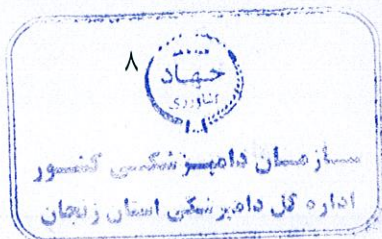 ۸
جهاد
کشاورزی
سازمان دامپزشکی کشور
اداره کل دامپزشکی استان زنجان